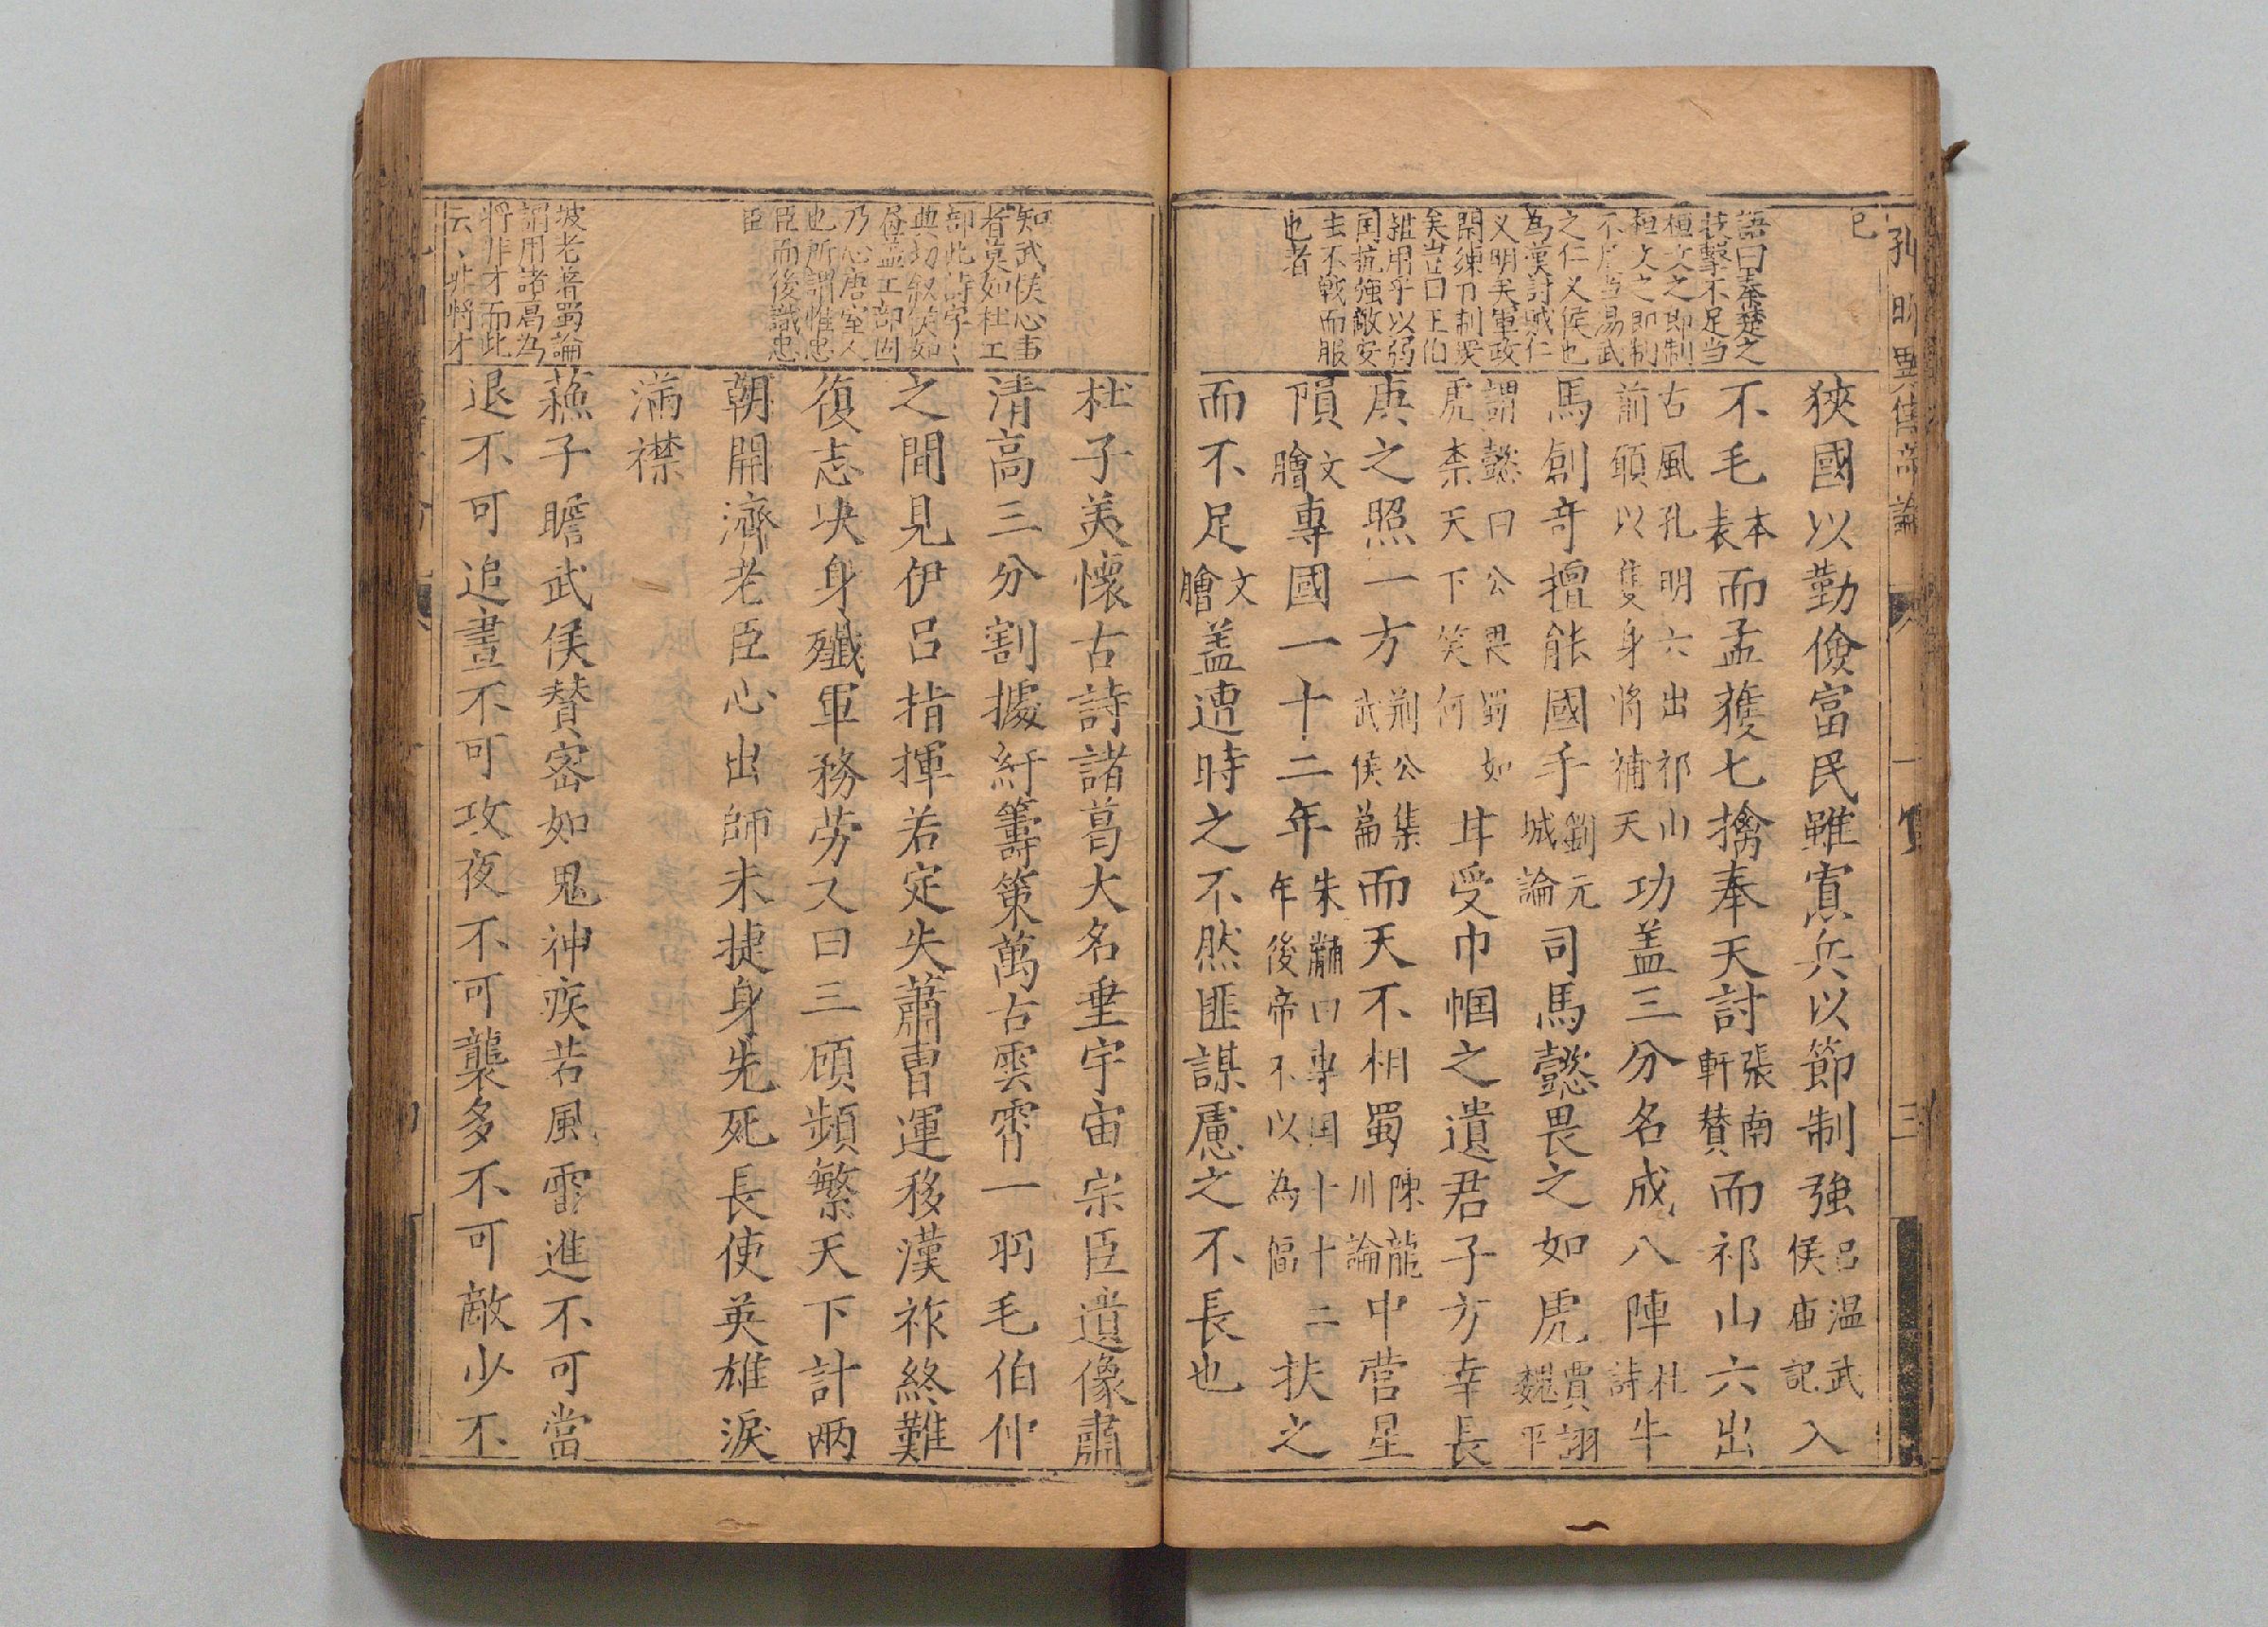 孔明興復而論
三
已
語曰秦楚之
技擊不足當
桓文之即制
桓文之即制
不足當湯武
之仁义侯也
為漢討賊仁
义明矣軍政
閑練刀制彧
矣豈曰王伯
雜用乎以弱
国抗強敵安
圭不戰而服
也者
狹國以勤儉富民雖寡兵以節制強呂温武侯庙記入
不毛本表而孟獲七擒奉天討張南軒賛而祁山六出
古風孔明六出祁山前頤以隻身將補天功盖三分名成八陣杜詩牛
馬創竒擅能國手劉元城論司馬懿畏之如虎賈詡魏平
謂懿曰公畏蜀如虎柰天下笑何甘受巾帼之遺君子方幸長
庚之照一方荆公集武侯篇而天不相蜀陳龍川論中营星
隕文膾專國一十二年朱黼曰專国十十二年後帝不以為偪扶之
而不足文膾盖遭時之不然匪謀慮之不長也
知武侯心事
者莫如杜工
部此詩字〻
典切叙侯如
昼盖工部固
乃心唐室人
也所謂惟忠
臣而後識忠
臣
坡老著蜀論
謂用諸葛為
將非才而此
云〻非將才
杜子美懷古詩諸葛大名垂宇宙宗臣遺像肅
清高三分割據紆籌策萬古雲霄一羽毛伯仲
之間見伊呂指揮若定失蕭曹運移漢祚終難
復志决身殲軍務劳又曰三顾頻繁天下計兩
朝開濟老臣心出師未捷身先死長使英雄淚
滿襟
蘓子瞻武侯賛密如鬼神疾若風雷進不可當
退不可追晝不可攻夜不可襲多不可敵少不